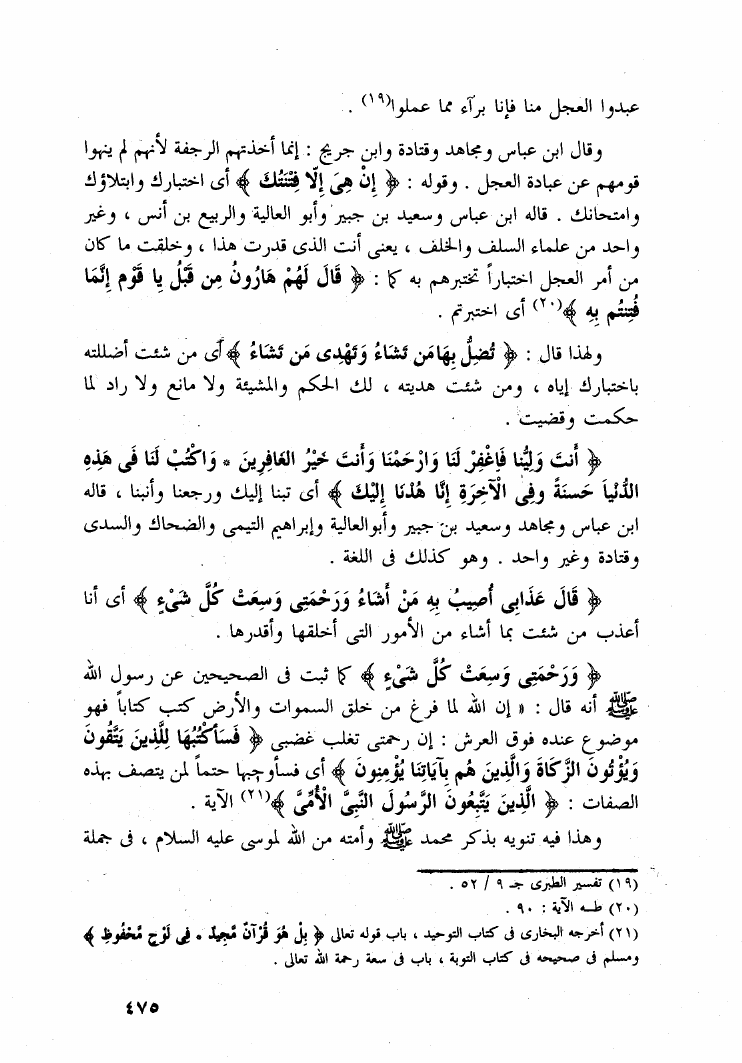 عبدوا العجل منا فإنا برآء مما عملوا(١٩) .
وقال ابن عباس ومجاهد وقتادة وابن جريج : إنما أخذتهم الرجفة لأنهم لم ينهوا
قومهم عن عبادة العجل . وقوله : ﴿ إِنْ هِىَ إِلَّا فِتْنَتُكَ ﴾ أى اختبارك وابتلاؤك
وامتحانك . قاله ابن عباس وسعيد بن جبير وأبو العالية والربيع بن أنس ، وغير
واحد من علماء السلف والخلف ، يعنى أنت الذى قدرت هذا ، وخلقت ما كان
من أمر العجل اختباراً تختبرهم به كما : ﴿ قَالَ لَهُمْ هَارُونُ مِن قَبْلُ يا قَوْمِ إِنَّمَا
فُتِنتُم بِهِ ﴾(٢٠) أى اختبرتم .
ولهذا قال : ﴿ تُضِلُّ بِهَامَن تَشَاءُ وَتَهْدِى مَن تَشَاءُ ﴾ أى من شئت أضللته
باختبارك إياه ، ومن شئت هديته ، لك الحكم والمشيئة ولا مانع ولا راد لما
حكمت وقضيت .
﴿ أَنتَ وَلِيُّنا فَاغْفِرْ لَنَا وَارْحَمْنَا وَأَنتَ خَيْرُ الغَافِرِينَ * وَاكْتُبْ لَنَا فى هَذِهِ
الدُّنْيَا حَسَنَةً وفِى الْآخِرَةِ إِنَّا هُدْنَا إِلَيْكَ ﴾ أى تبنا إليك ورجعنا وأنبنا ، قاله
ابن عباس ومجاهد وسعيد بن جبير وأبوالعالية وإبراهيم التيمى والضحاك والسدى
وقتادة وغير واحد . وهو كذلك فى اللغة .
﴿ قَالَ عَذَابِى أُصِيبُ بِهِ مَنْ أَشَاءُ وَرَحْمَتِى وَسِعَتْ كُلَّ شَىْءٍ ﴾ أى أنا
أعذب من شئت بما أشاء من الأمور التى أخلقها وأقدرها .
﴿ وَرَحْمَتِى وَسِعَتْ كُلَّ شَىْءٍ ﴾ كما ثبت فى الصحيحين عن رسول الله
ﷺ أنه قال : « إن الله لما فرغ من خلق السموات والأرض كتب كتاباً فهو
موضوع عنده فوق العرش : إن رحمتى تغلب غضبى ﴿ فَسَأَكْتُبُهَا لِلَّذِينَ يَتَّقُونَ
وَيُؤْتُونَ الزَّكَاةَ وَالَّذِينَ هُم بِآيَاتِنَا يُؤْمِنُونَ ﴾ أى فسأوجبها حتماً لمن يتصف بهذه
الصفات : ﴿ الَّذِينَ يَتَّبِعُونَ الرَّسُولَ النَّبِىَّ الْأُمِّىَّ ﴾(٢١) الآية .
وهذا فيه تنويه بذكر محمد ﷺ وأمته من الله لموسى عليه السلام ، فى جملة
(١٩) تفسير الطبرى جـ ٩ / ٥٢ .
(٢٠) طـه الآية : ٩٠ .
(٢١) أخرجه البخارى فى كتاب التوحيد ، باب قوله تعالى ﴿ بَلْ هُوَ قُرْآنٌ مَّجِيدٌ . فِى لَوْحٍ مَّحْفُوظٍ ﴾
ومسلم فى صحيحه فى كتاب التوبة ، باب فى سعة رحمة الله تعالى .
٤٧٥